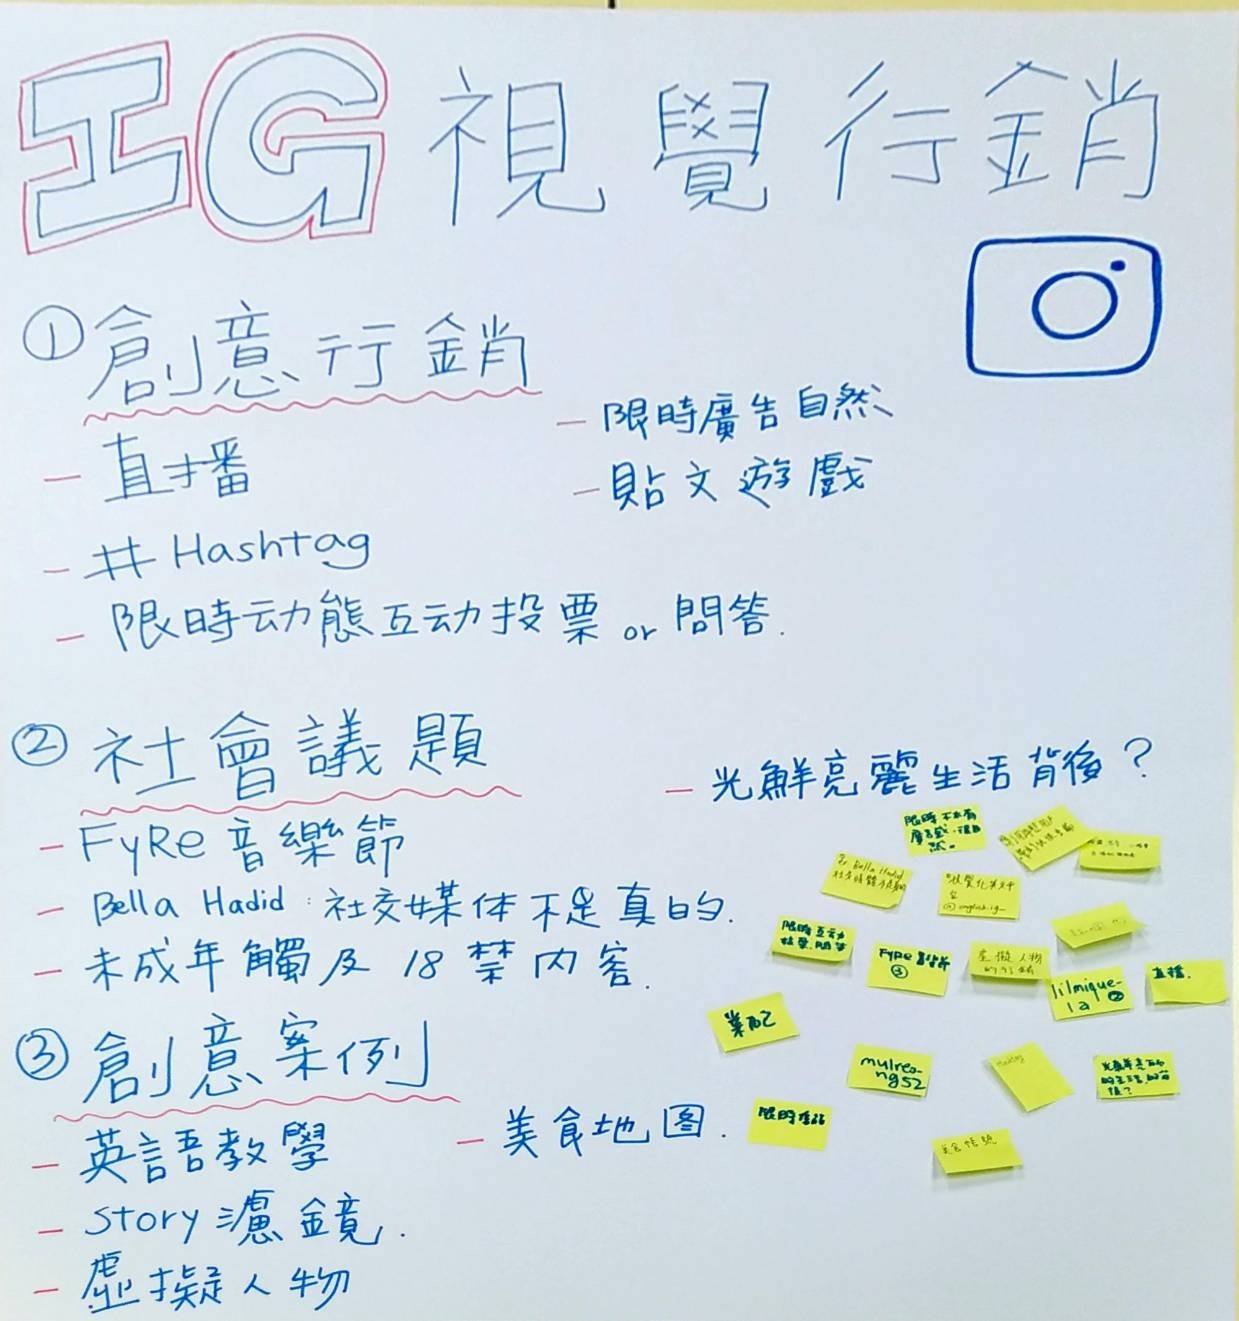 IG 視覺行銷
① 創意行銷
- 直播
- # Hashtag
- 限時动態互动投票 or 問答.
- 限時廣告自然
- 貼文遊戲
② 社會議題
- FyRe 音樂節
- Bella Hadid : 社交媒体不是真的.
- 未成年觸及 18 禁内容.
- 光鮮亮麗生活背後?
③ 創意案例
- 英語教學
- Story 濾鏡.
- 虛擬人物
- 美食地图.
限時互动
投票、問答
FyRe 音樂節
③
虛擬人物
lilmique-
la ②
直播.
業配
mulreo-
ng52
Hashtag
美食帳號